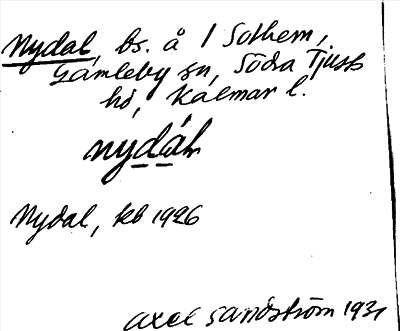 Nydal, bs. å 1 Solhem,
Gamleby sn, Södra Tjusts
hd, Kalmar l.
nydál
Nydal, kb 1926
Axel Sandström 1931